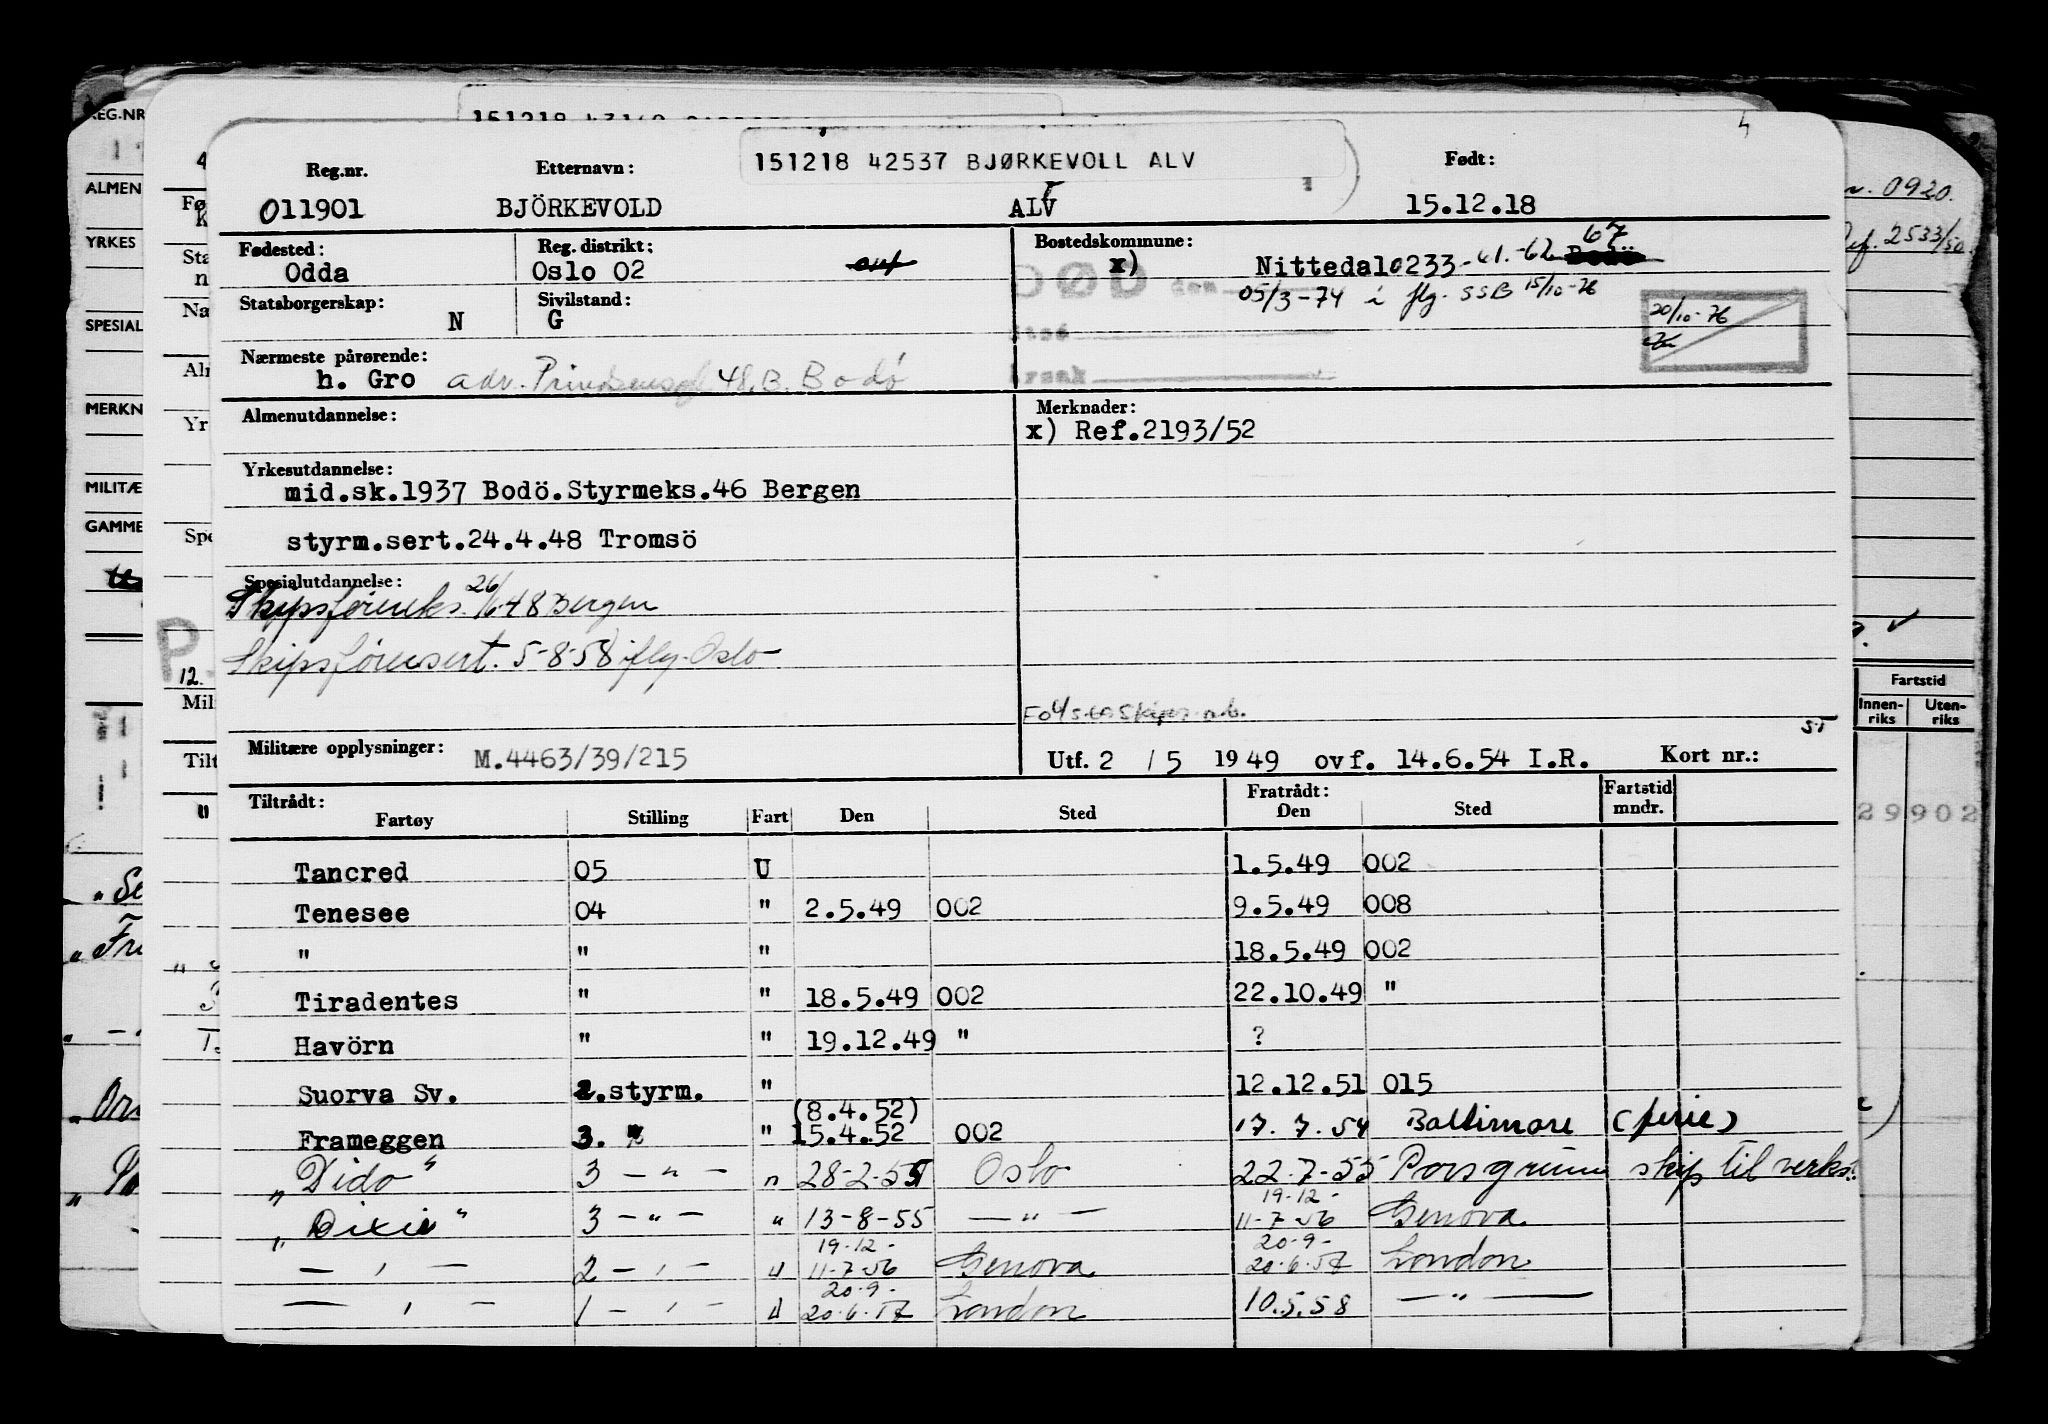 151218 42537 BJØRKEVOLL ALV
Reg.nr. Etternavn: Født:
011901 BJÖRKEVOLD ALV 15.12.18
Fødested: Reg. distrikt: Bostedskommune: 67
Odda Oslo 02 x) Nittedal 0233-41.-62 Bodö
DØD den
05/3-74 i flg. SSB 15/10-76
Statsborgerskap: Sivilstand:
N G
20/10-76
Nærmeste pårørende:
h. Gro adr. Prinsensgt 48.B. Bodø
Almenutdannelse: Merknader:
x) Ref.2193/52
Yrkesutdannelse:
mid.sk.1937 Bodö.Styrmeks.46 Bergen
styrm.sert.24.4.48 Tromsö
Spesialutdannelse:
Skipsføreeks. 26/6-48 Bergen
Skipsførersert. 5-8-58 iflg. Oslo
Militære opplysninger: M.4463/39/215 Utf. 2 / 5 1949 ovf. 14.6.54 I.R. Kort nr.:
Tiltrådt: Fratrådt: Fartstid
Fartøy Stilling Fart Den Sted Den Sted mndr.
Tancred 05 U 1.5.49 002
Tenesee 04 " 2.5.49 002 9.5.49 008
" " " 18.5.49 002
Tiradentes " " 18.5.49 002 22.10.49 "
Havörn " " 19.12.49 " ?
Suorva Sv. 2.styrm. " 12.12.51 015
(8.4.52)
Frameggen 3. " " 15.4.52 002 17.7.54 Baltimore (ferie)
"Dido" 3 - " - " 28-2-55 Oslo 22-7-55 Porsgrunn skip til verks.
19-12-
"Dixie" 3 - " - " 13-8-55 — " — 11-7-56 Genova
19-12- 20-9-
— " — 2 - " - " 11-7-56 Genova 20-6-57 London
20-9-
— " — 1 - " - " 20-6-57 London 10.5.58 — " —
REG.NR
ALMEN
YRKES
SPESIAL
MERKN
MILITÆ
GAMME
151218 43149
0920.
2533/50
Fartstid
Innen- Uten-
riks riks
29902